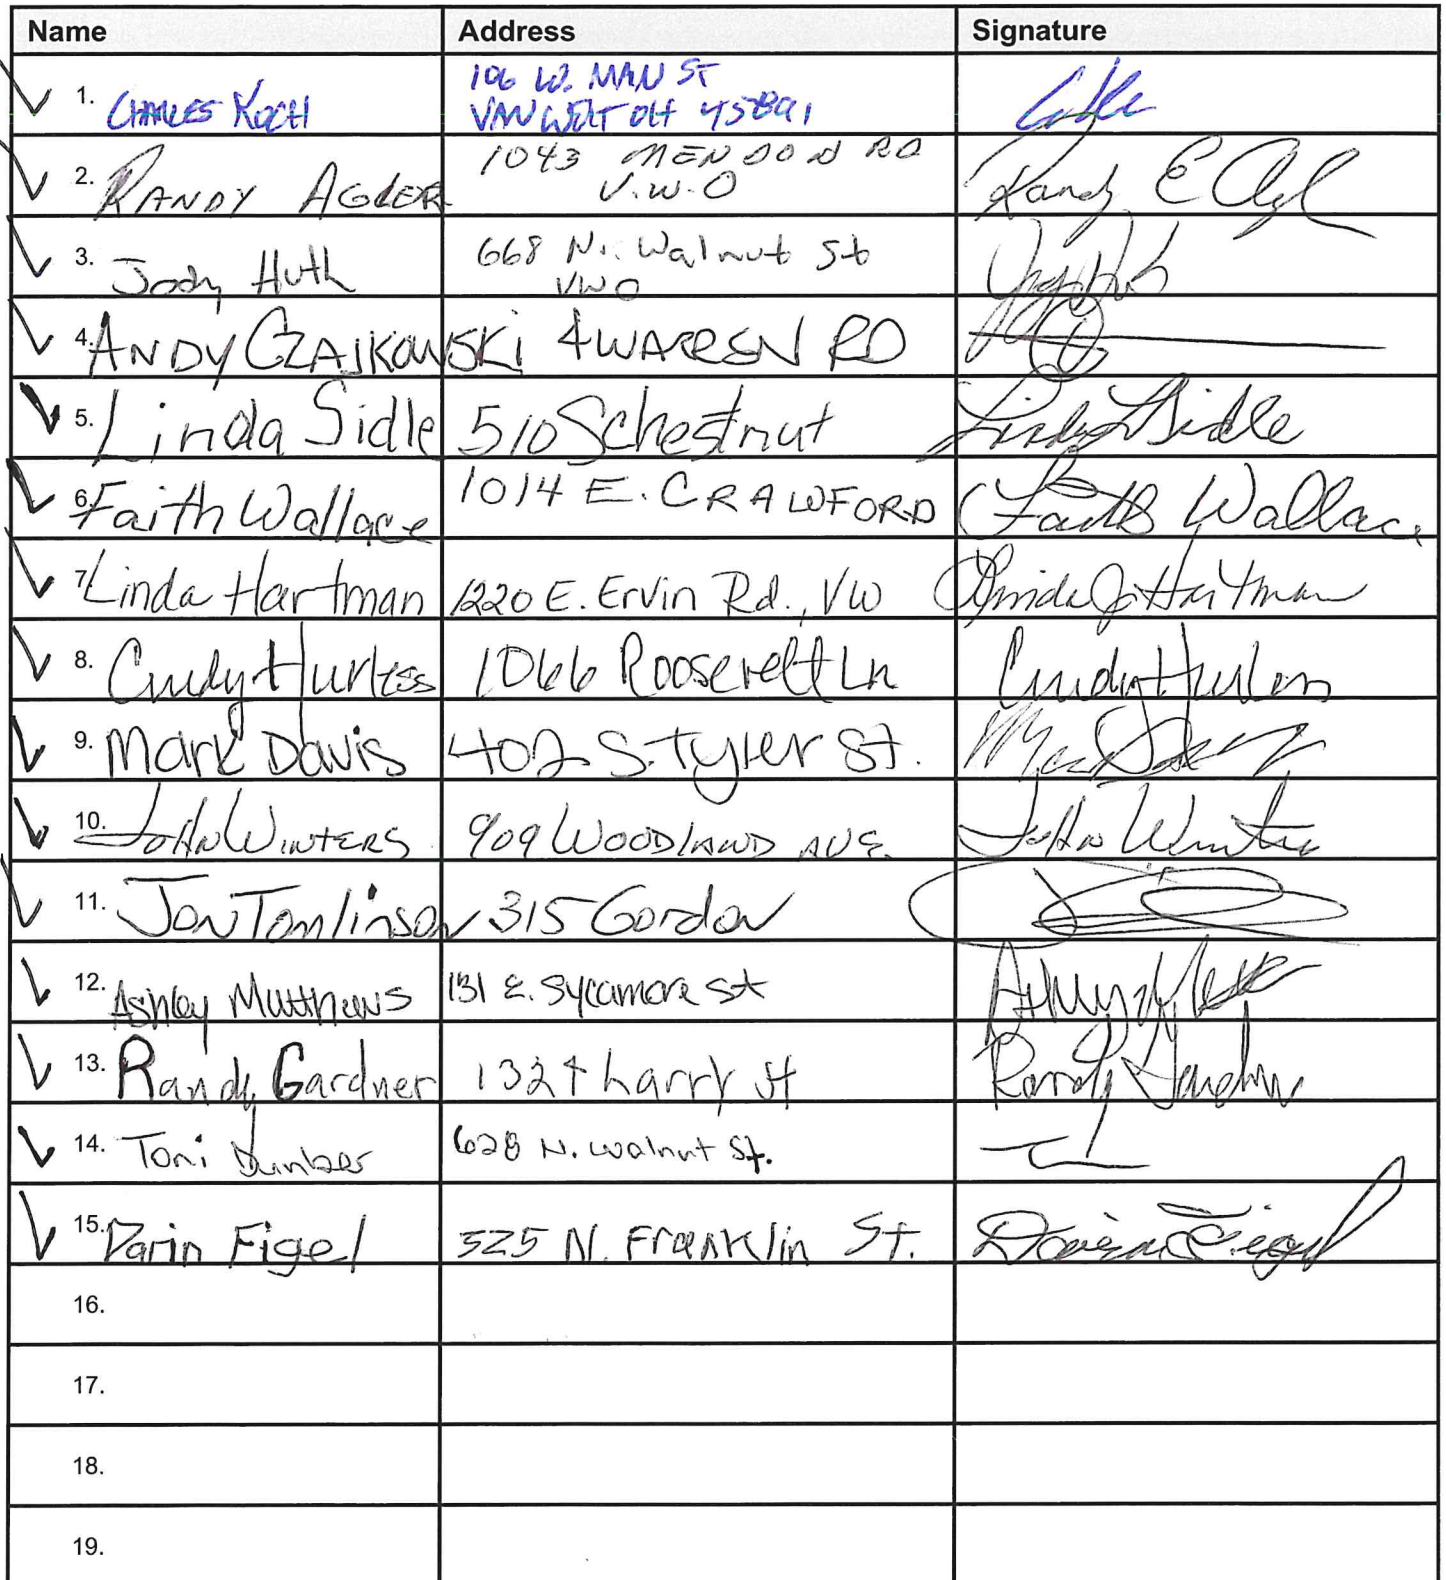 Name Address Signature
1. CHARLES KOCH 106 W. MAIN ST
VAN WERT OH 45891
2. RANDY AGLER 1043 MENDON RD
V.W.O Randy E Agl
3. Jody Huth 668 N. Walnut St
VWO
4. ANDY CZAJKOWSKI 4 WARREN RD
5. Linda Sidle 510 S chestnut Linda Sidle
6. Faith Wallace 1014 E. CRAWFORD Faith Wallace
7. Linda Hartman 1220 E. Ervin Rd., VW Linda J. Hartman
8. Cindy Hurless 1066 Roosevelt Ln Cindy Hurless
9. Mark Davis 402 S. Tyler St.
10. JOHN WINTERS 909 WOODLAND AVE. John Winters
11. Jon Tomlinson 315 Gordon
12. Ashley Matthews 131 E. Sycamore St
13. Randy Gardner 1324 Larry St Randy Gardner
14. Toni Dunbar 628 N. walnut St.
15. Darin Figel 525 N. Franklin St. Darin Figel
16.
17.
18.
19.